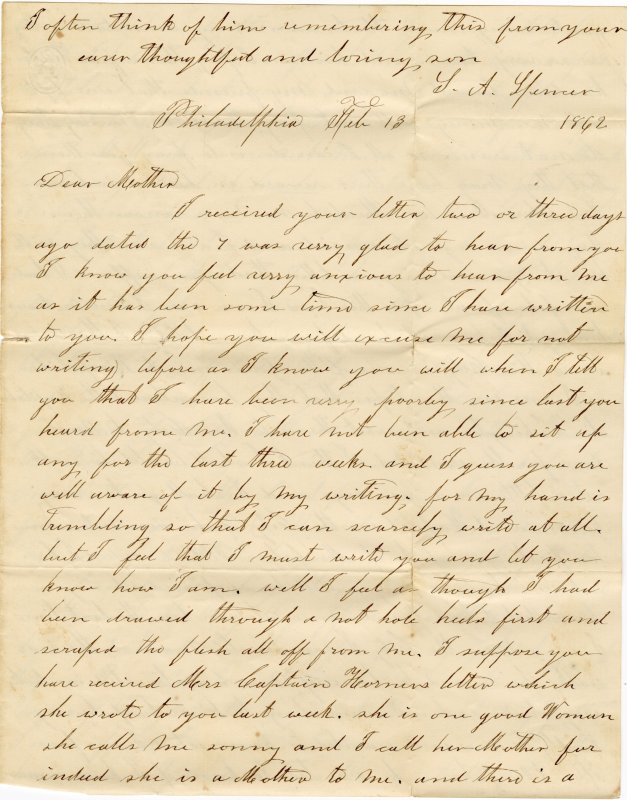 I often think of him remembering this from your
ever thoughtfull and loving son
S. A. Spencer
Philadelphia Feb 13 1862
Dear Mother
I received your letter two or three days
ago dated the 7 was verry glad to hear from you
I know you feel verry anxious to hear from me
as it has been some time since I have written
to you. I hope you will excuse me for not
writing before as I know you will when I tell
you that I have been verry poorley since last you
heard frome me. I have not been able to sit up
any for the last three weeks and I guess you are
well aware of it by my writing. for my hand is
trembling so that I can scarcely write at all.
but I feel that I must write you and let you
know how I am. well I feel as though I had
been drawed through a not hole heels first and
scraped the flesh all off from me. I suppose you
have received Mrs Captain Horners letter which
she wrote to you last week. she is one good Woman
she calls me sonny and I call her Mother for
indeed she is a Mother to me. and there is a